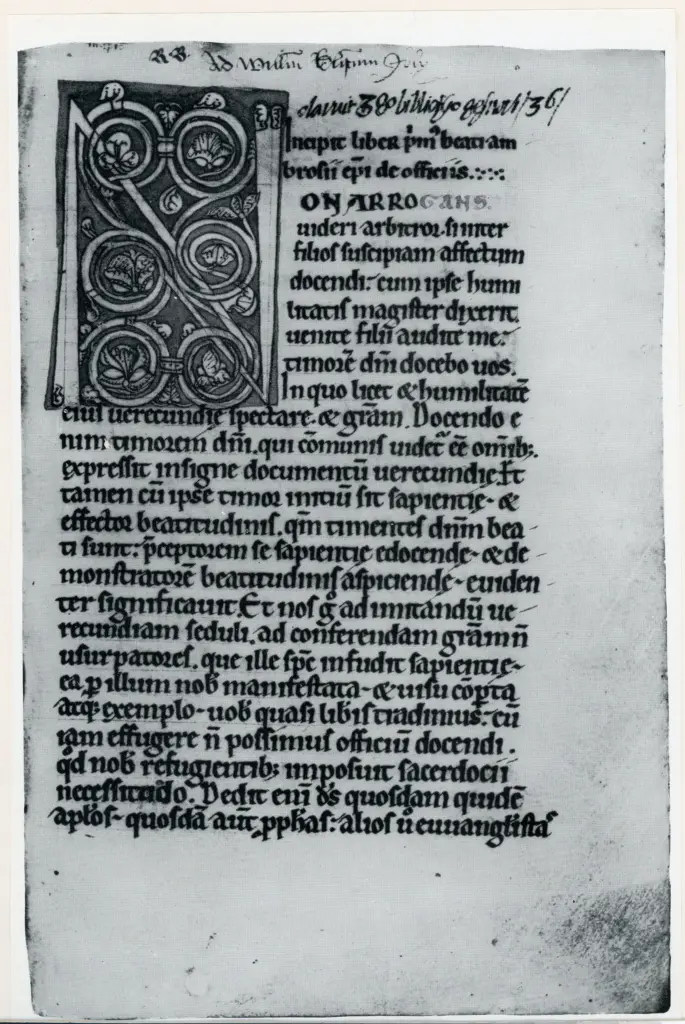 R. B. Ad Willm
Incipit liber pm' beati am
brosii ep̄i de officiis.
NON ARROGANS
uideri arbitror. si inter
filios suscipiam affectum
docendi. cum ipse humi
litatis magister dixerit.
uenite filii audite me.
timorē dm̄i docebo uos.
In quo licet & humilitatē
eius uerecundie spectare. & grām. Docendo e
nim timorem dm̄i. qui cōmunis uidet' eē omīb;.
expressit insigne documentū uerecundie. Et
tamen cū ipse timor initiū sit sapientie. &
effector beatitudinis. qm̄ timentes dnm̄ bea-
ti sunt: p̄ceptorem se sapientie edocende. & de-
monstratorē beatitudinis aspiciende. euiden
ter significauit. Et nos g° ad imitandū ue-
recundiam seduli. ad conferendam grām n̄
usurpatores. que ille spē infudit sapientie.
ea p illum nob' manifestata. & uisu cōpta
atq; exemplo. uob' quasi libis tradimus. cū
iam effugere n̄ possimus officiū docendi.
qd nob' refugientib; imposuit sacerdocii
necessitudo. Dedit eni ds̄ quosdam quidē
aplos. quosdā aut̄ pphas. alios ū euuanglistas